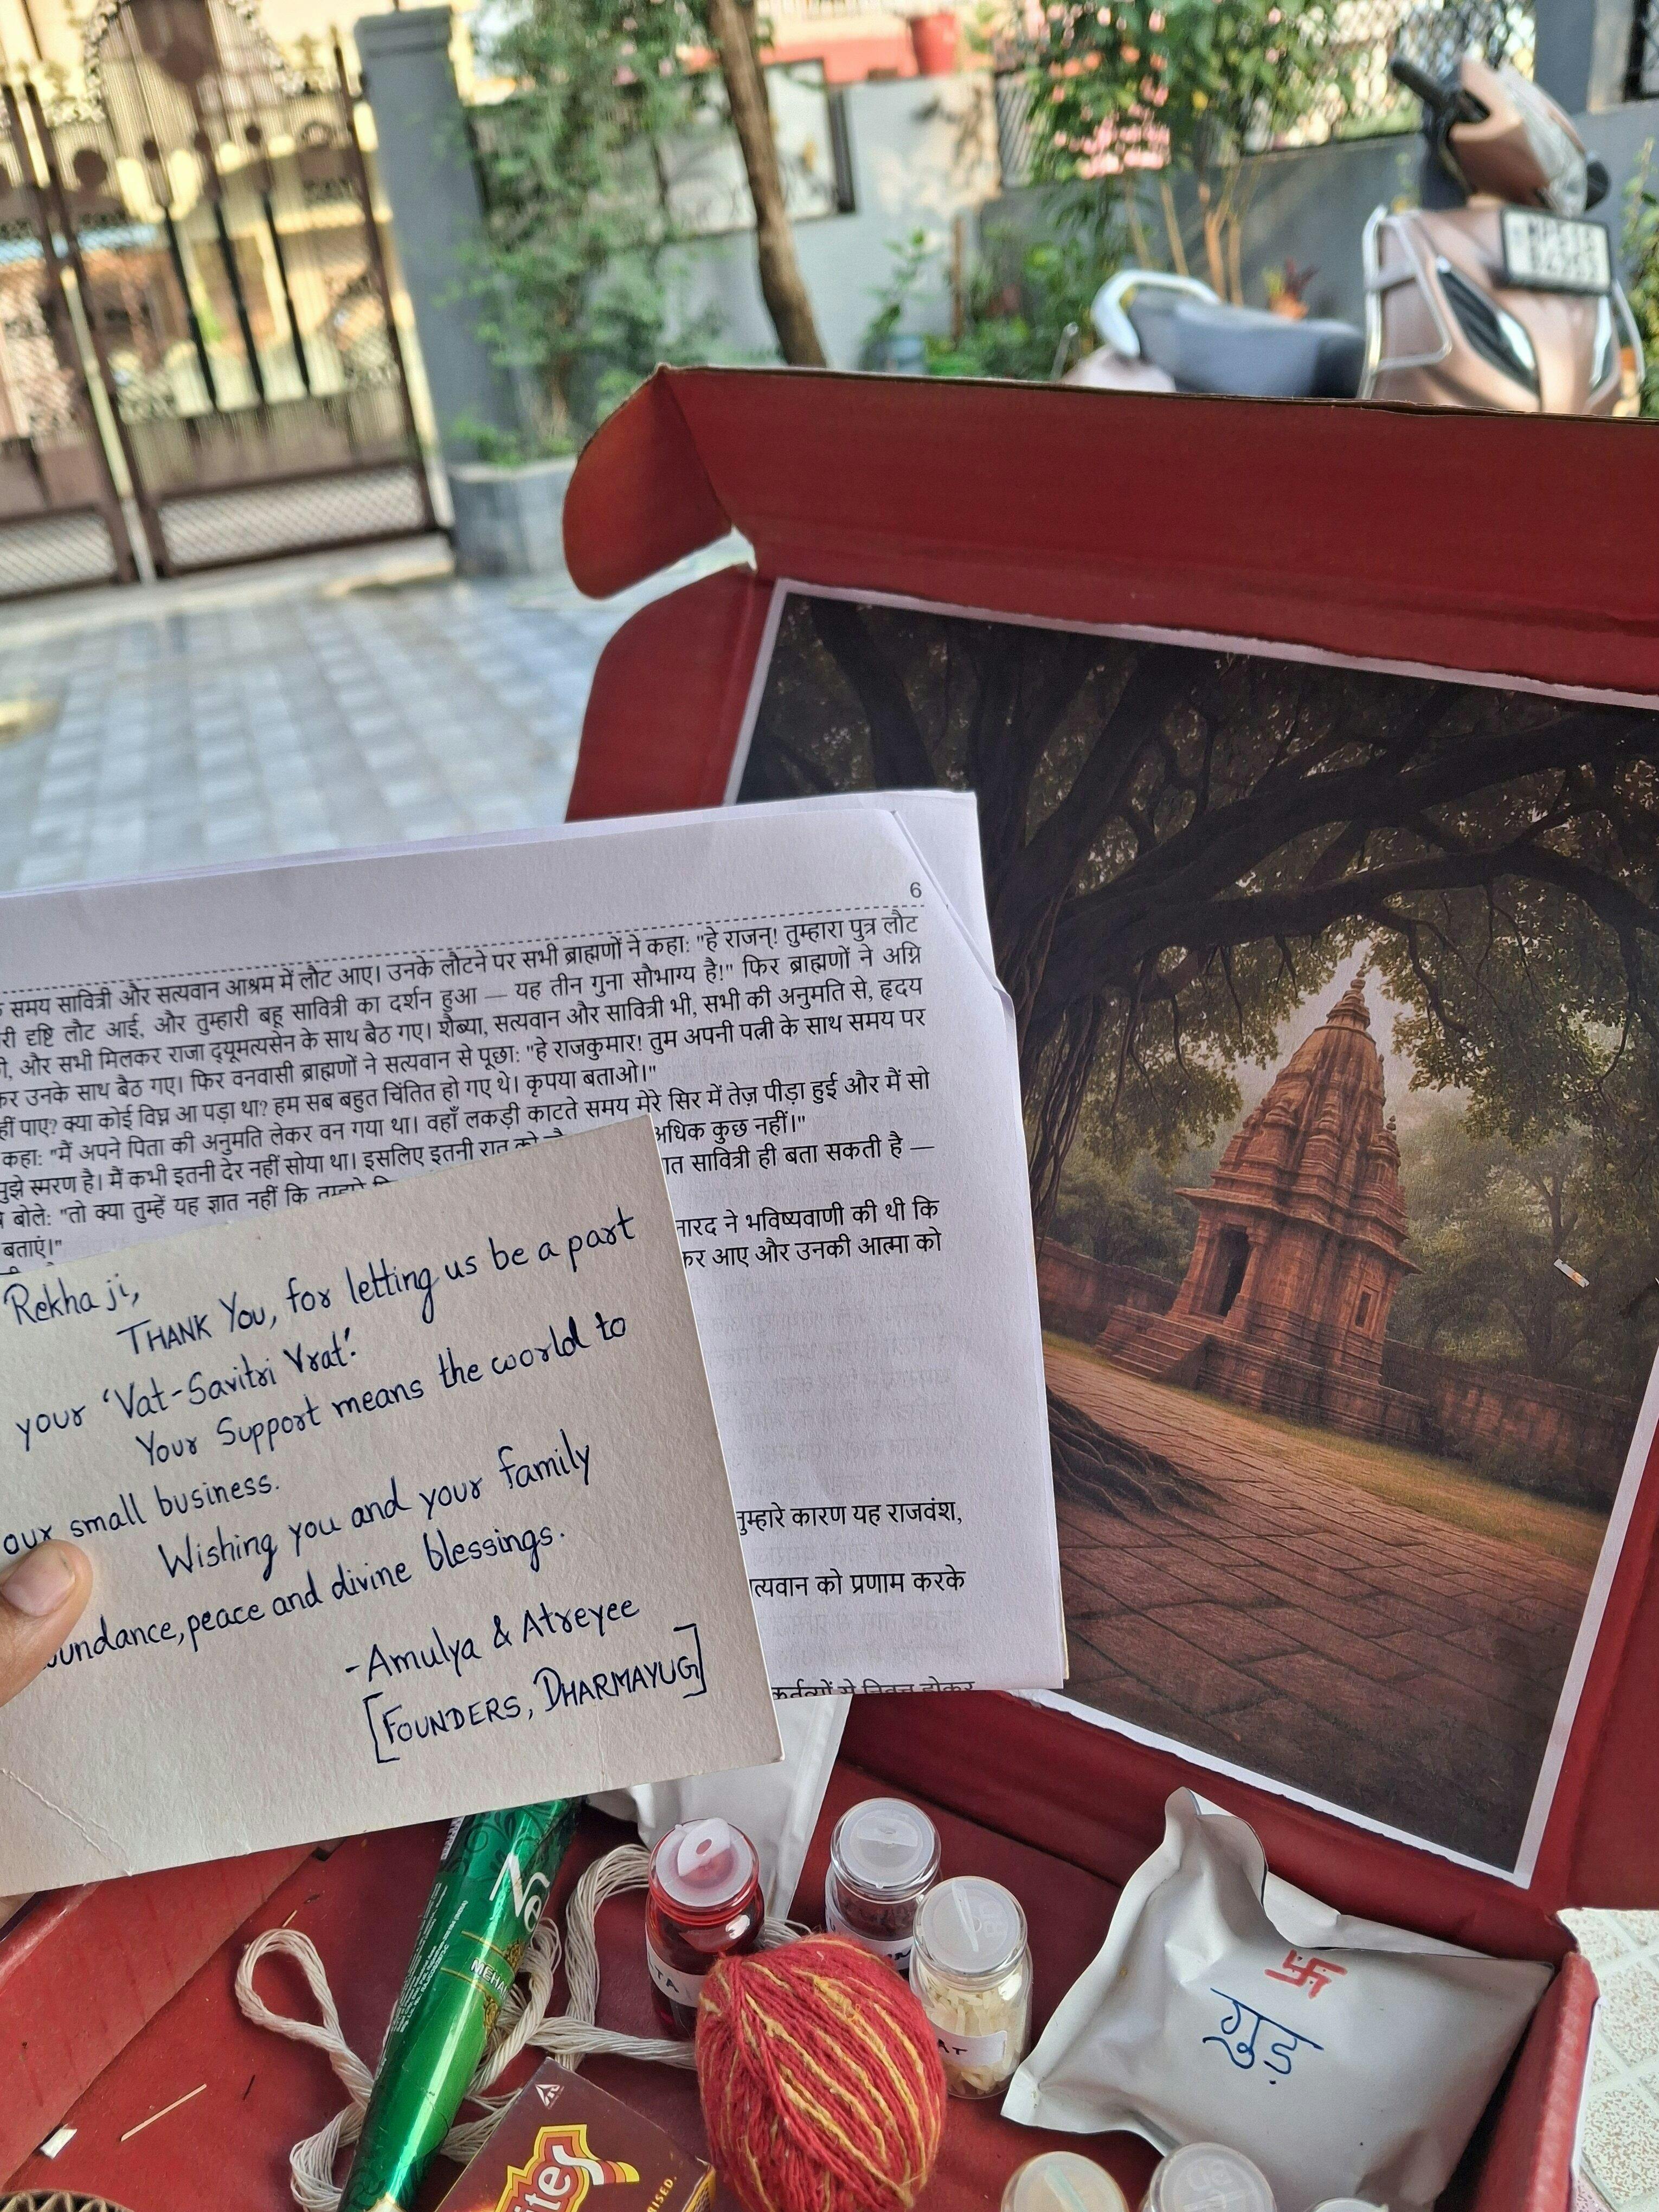 6
समय सावित्री और सत्यवान आश्रम में लौट आए। उनके लौटने पर सभी ब्राह्मणों ने कहा: "हे राजन्! तुम्हारा पुत्र लौट
री दृष्टि लौट आई, और तुम्हारी बहू सावित्री का दर्शन हुआ — यह तीन गुना सौभाग्य है!" फिर ब्राह्मणों ने अग्नि
और सभी मिलकर राजा द्यूमत्यसेन के साथ बैठ गए। शैब्या, सत्यवान और सावित्री भी, सभी की अनुमति से, हृदय
कर उनके साथ बैठ गए। फिर वनवासी ब्राह्मणों ने सत्यवान से पूछा: "हे राजकुमार! तुम अपनी पत्नी के साथ समय पर
हीं पाए? क्या कोई विघ्न आ पड़ा था? हम सब बहुत चिंतित हो गए थे। कृपया बताओ।"
कहा: "मैं अपने पिता की अनुमति लेकर वन गया था। वहाँ लकड़ी काटते समय मेरे सिर में तेज़ पीड़ा हुई और मैं सो
मुझे स्मरण है। मैं कभी इतनी देर नहीं सोया था। इसलिए इतनी रात को अधिक कुछ नहीं।"
बोले: "तो क्या तुम्हें यह ज्ञात नहीं कि सावित्री ही बता सकती है —
बताएं।"
नारद ने भविष्यवाणी की थी कि
कर आए और उनकी आत्मा को
तुम्हारे कारण यह राजवंश,
त्यवान को प्रणाम करके
Rekha ji,
THANK YOU, for letting us be a part
your 'Vat-Savitri Vrat'.
Your Support means the world to
our small business.
Wishing you and your family
undance, peace and divine blessings.
-Amulya & Atreyee
[FOUNDERS, DHARMAYUG]
Ne
MEHA
TA
AT
卐
गुड़
ite
RISED.